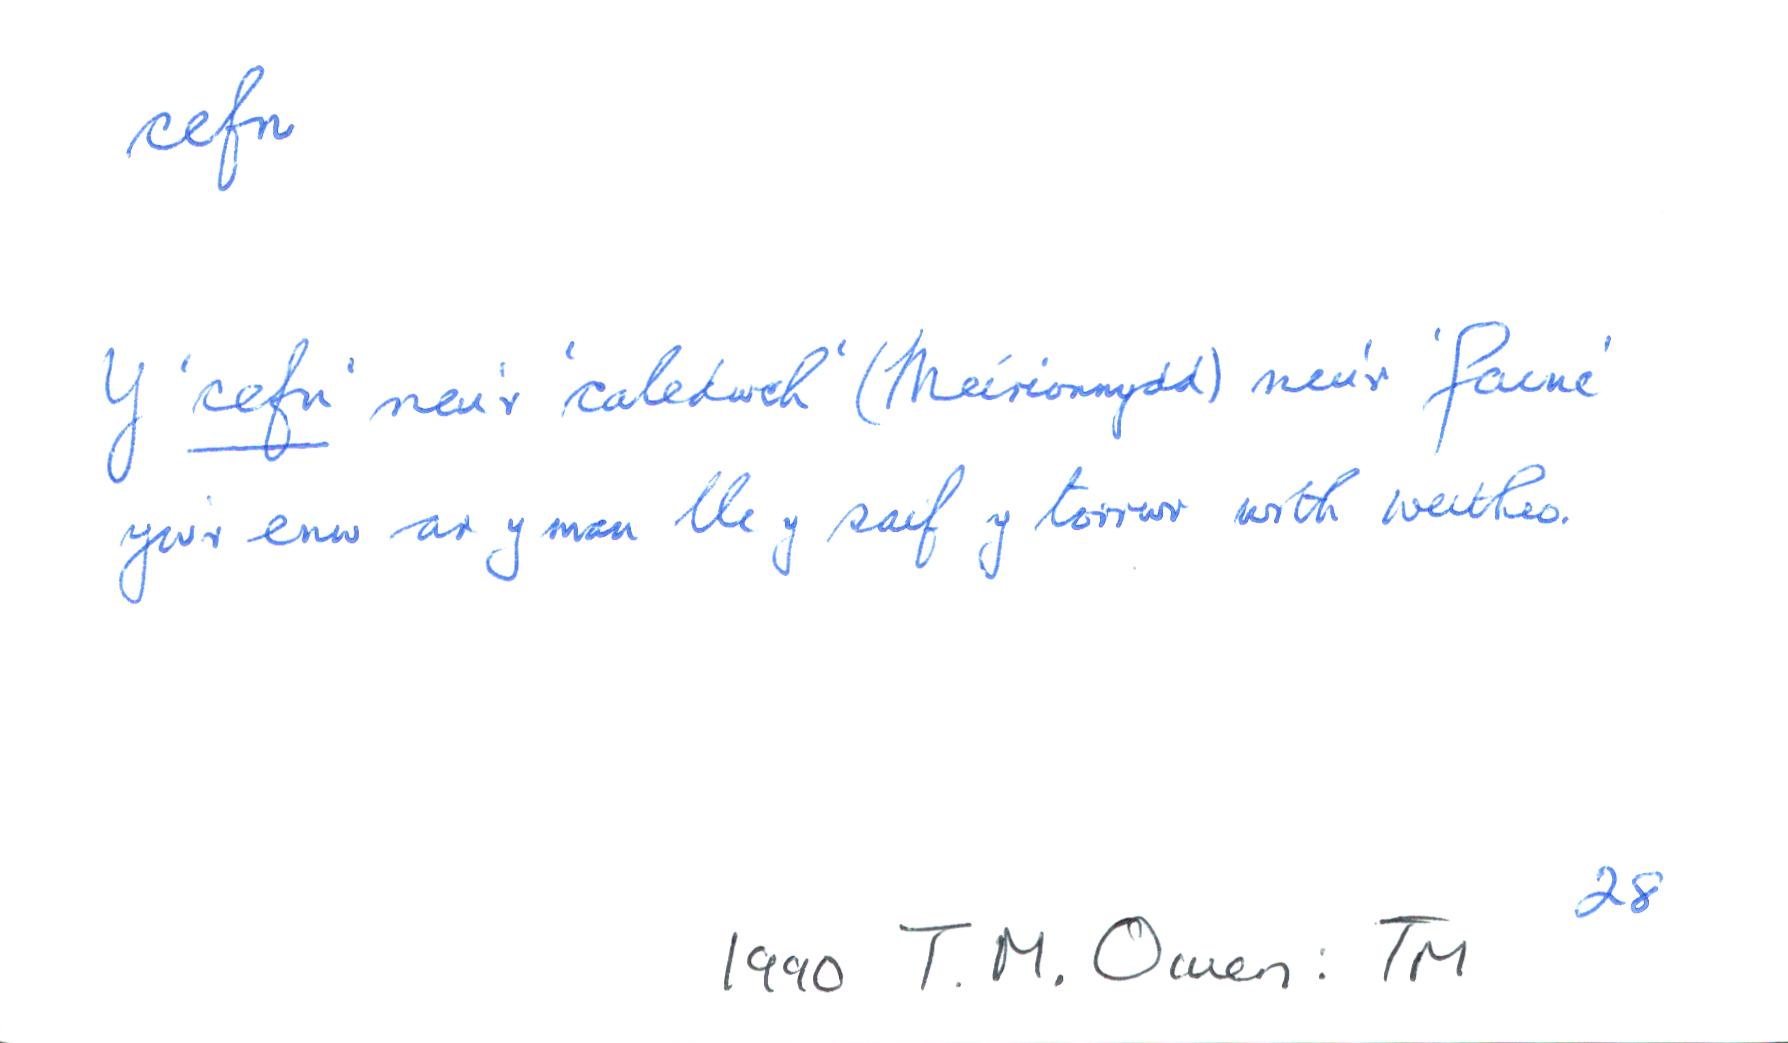 cefn
Y 'cefn' neu'r 'caledwch' (Meirionnydd) neu'r
yw'r enw ar y man lle y saif y torrwr wrth weithio.
28
1990 T. M. Owen: TM